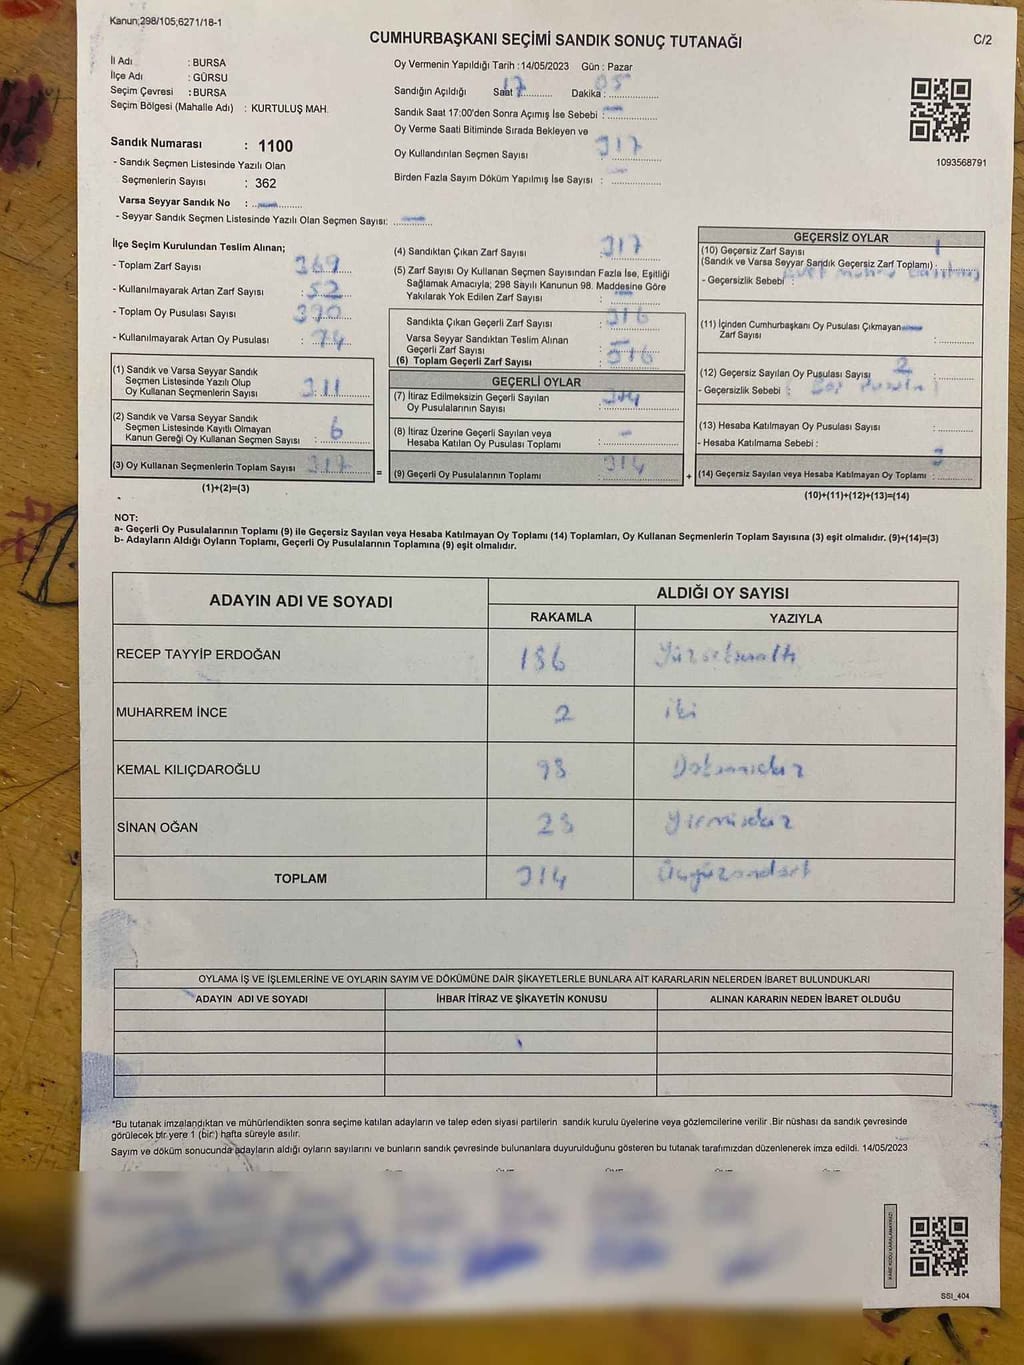 Kanun;298/105;6271/18-1
CUMHURBAŞKANI SEÇİMİ SANDIK SONUÇ TUTANAĞI
C/2
İl Adı : BURSA
İlçe Adı : GÜRSU
Seçim Çevresi : BURSA
Seçim Bölgesi (Mahalle Adı) : KURTULUŞ MAH.
Sandık Numarası : 1100
- Sandık Seçmen Listesinde Yazılı Olan
Seçmenlerin Sayısı : 362
Varsa Seyyar Sandık No :
- Seyyar Sandık Seçmen Listesinde Yazılı Olan Seçmen Sayısı:
Oy Vermenin Yapıldığı Tarih :14/05/2023 Gün : Pazar
Sandığın Açıldığı Saat 17 Dakika : 05
Sandık Saat 17:00'den Sonra Açımış İse Sebebi :
Oy Verme Saati Bitiminde Sırada Bekleyen ve
Oy Kullandırılan Seçmen Sayısı 317
Birden Fazla Sayım Döküm Yapılmış İse Sayısı :
1093568791
İlçe Seçim Kurulundan Teslim Alınan;
- Toplam Zarf Sayısı 369
- Kullanılmayarak Artan Zarf Sayısı : 52
- Toplam Oy Pusulası Sayısı 390
- Kullanılmayarak Artan Oy Pusulası : 74
(1) Sandık ve Varsa Seyyar Sandık
Seçmen Listesinde Yazılı Olup
Oy Kullanan Seçmenlerin Sayısı 311
(2) Sandık ve Varsa Seyyar Sandık
Seçmen Listesinde Kayıtlı Olmayan
Kanun Gereği Oy Kullanan Seçmen Sayısı : 6
(3) Oy Kullanan Seçmenlerin Toplam Sayısı 317
=
(1)+(2)=(3)
(4) Sandıktan Çıkan Zarf Sayısı 317
(5) Zarf Sayısı Oy Kullanan Seçmen Sayısından Fazla İse, Eşitliği
Sağlamak Amacıyla; 298 Sayılı Kanunun 98. Maddesine Göre
Yakılarak Yok Edilen Zarf Sayısı :
Sandıkta Çıkan Geçerli Zarf Sayısı : 316
Varsa Seyyar Sandıktan Teslim Alınan
Geçerli Zarf Sayısı :
(6) Toplam Geçerli Zarf Sayısı : 316
GEÇERLİ OYLAR
(7) İtiraz Edilmeksizin Geçerli Sayılan
Oy Pusulalarının Sayısı : 314
(8) İtiraz Üzerine Geçerli Sayılan veya
Hesaba Katılan Oy Pusulası Toplamı : -
(9) Geçerli Oy Pusulalarının Toplamı : 314
+
GEÇERSİZ OYLAR
(10) Geçersiz Zarf Sayısı 1
(Sandık ve Varsa Seyyar Sandık Geçersiz Zarf Toplamı) :
- Geçersizlik Sebebi :
(11) İçinden Cumhurbaşkanı Oy Pusulası Çıkmayan
Zarf Sayısı :
(12) Geçersiz Sayılan Oy Pusulası Sayısı 2
- Geçersizlik Sebebi : Boş Pusula
(13) Hesaba Katılmayan Oy Pusulası Sayısı :
- Hesaba Katılmama Sebebi :
(14) Geçersiz Sayılan veya Hesaba Katılmayan Oy Toplamı : 3
(10)+(11)+(12)+(13)=(14)
NOT:
a- Geçerli Oy Pusulalarının Toplamı (9) ile Geçersiz Sayılan veya Hesaba Katılmayan Oy Toplamı (14) Toplamları, Oy Kullanan Seçmenlerin Toplam Sayısına (3) eşit olmalıdır. (9)+(14)=(3)
b- Adayların Aldığı Oyların Toplamı, Geçerli Oy Pusulalarının Toplamına (9) eşit olmalıdır.
ADAYIN ADI VE SOYADI
ALDIĞI OY SAYISI
RAKAMLA YAZIYLA
RECEP TAYYİP ERDOĞAN 186
MUHARREM İNCE 2 iki
KEMAL KILIÇDAROĞLU 98
SİNAN OĞAN 28
TOPLAM 314
OYLAMA İŞ VE İŞLEMLERİNE VE OYLARIN SAYIM VE DÖKÜMÜNE DAİR ŞİKAYETLERLE BUNLARA AİT KARARLARIN NELERDEN İBARET BULUNDUKLARI
ADAYIN ADI VE SOYADI İHBAR İTİRAZ VE ŞİKAYETİN KONUSU ALINAN KARARIN NEDEN İBARET OLDUĞU
*Bu tutanak imzalandıktan ve mühürlendikten sonra seçime katılan adayların ve talep eden siyasi partilerin sandık kurulu üyelerine veya gözlemcilerine verilir .Bir nüshası da sandık çevresinde
görülecek bir yere 1 (bir) hafta süreyle asılır.
Sayım ve döküm sonucunda adayların aldığı oyların sayılarını ve bunların sandık çevresinde bulunanlara duyurulduğunu gösteren bu tutanak tarafımızdan düzenlenerek imza edildi. 14/05/2023
SSI_404